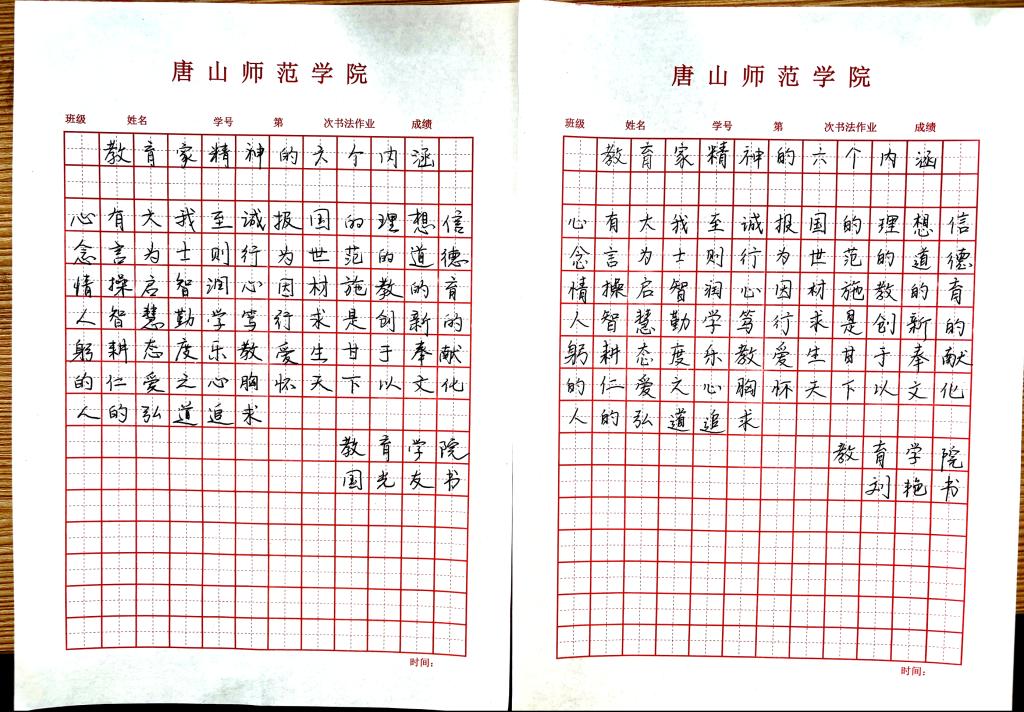 唐山师范学院
班级 姓名 学号 第 次书法作业 成绩
教育家精神的六个内涵
心有大我至诚报国的理想信
念言为士则行为世范的道德
情操启智润心因材施教的育
人智慧勤学笃行求是创新的
躬耕态度乐教爱生甘于奉献
的仁爱之心胸怀天下以文化
人的弘道追求
教育学院
国光友书
时间：
唐山师范学院
班级 姓名 学号 第 次书法作业 成绩
教育家精神的六个内涵
心有大我至诚报国的理想信
念言为士则行为世范的道德
情操启智润心因材施教的育
人智慧勤学笃行求是创新的
躬耕态度乐教爱生甘于奉献
的仁爱之心胸怀天下以文化
人的弘道追求
教育学院
刘艳书
时间：